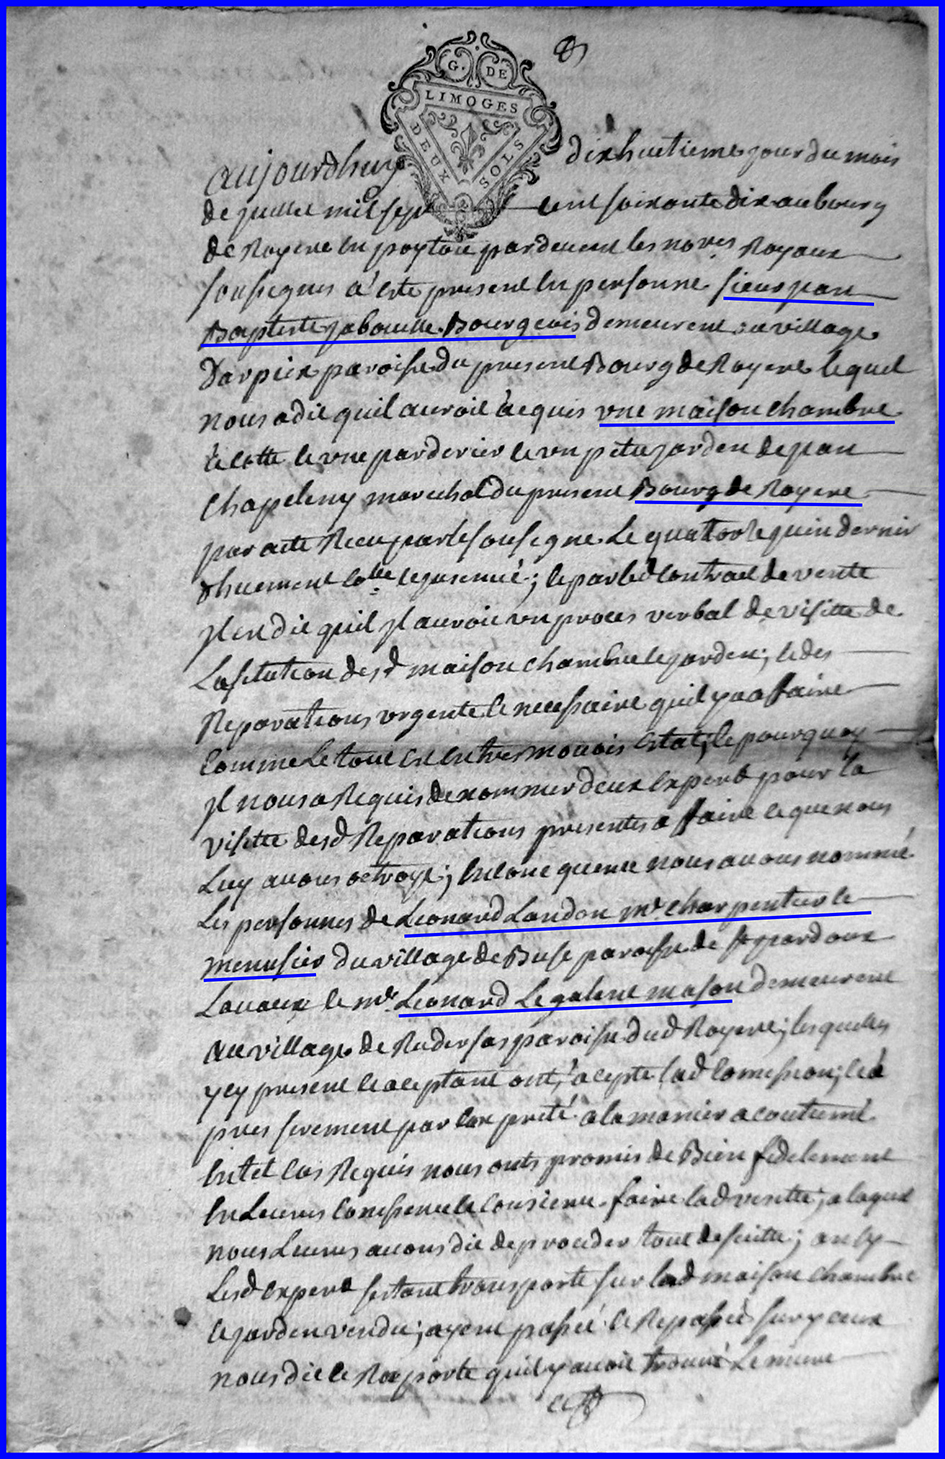 G. DE
LIMOGES
DEUX SOLS
aujourdhuy dixhuetieme jour du mois
de juillet mil sept cent soixante dix au bourg
de Royere en poytou pardevent les no.res Royaux
sousignes a este present en personne sieur jean
Baptiste jabouille Bourgeois demeurent au village
Darpeix paroisse du present Bourg de Royere lequel
nous a dit quil auroit acquis vne maison chambre
a cotte et vne par derier et vn petit jarden de jean
Chapeleny marechal du present Bourg de Royere
par acte Recu par le sousigne Le quatorze juin dernier
et par led contract de vente
jl en dit quil jl auroit vn proces verbal de visitte de
La situation desd maison chambre et jarden; et des
Reparations vrgente et necessaire quil y a a ffaire
comme Le tout est en tres mouois estat; cepourquoy
jl nous a Requis de nommer deux expert pour la
visitte desd Reparations presentes a ffaire ce que nous
Luy avons octroye; en consequence nous avons nommé
Les personnes de Leonard Landon me charpentier et
menusier du village de Buse paroisse de st pardoux
Lavaux et me Leonard Legalent mason demeurent
au village de Rudersas paroisse dud Royere; lesquelles
ycy present et aceptant ont acepte lad comession; et a
pres serement par eux preté a la manier acoutumé
en tel cas Requis nous onts promis de Bien fidelement
en Leurs consience faire lad visitte; a laquel
nous Leurs avons dit de proceder tout desuitte;
Lesd expert sestant transporte sur lad maison chambre
et jarden vendu; ayent passé et Repassé sur yceux
nous dit et Raporte quil y auoit trouué Le mure